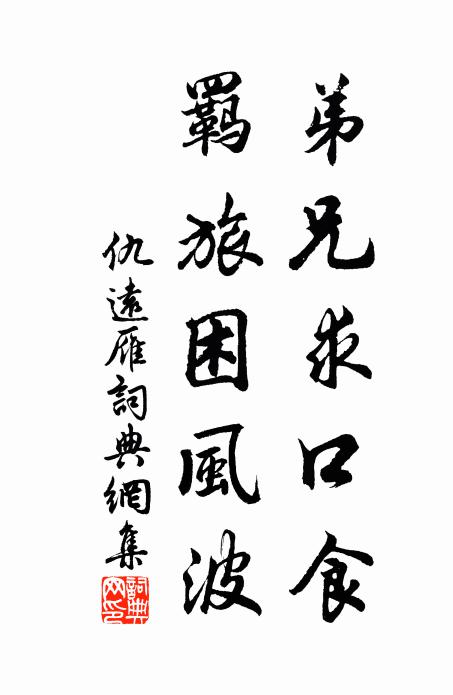 弟兄求口食
羁旅困風波
仇遠雁詞典網集
詞典網印